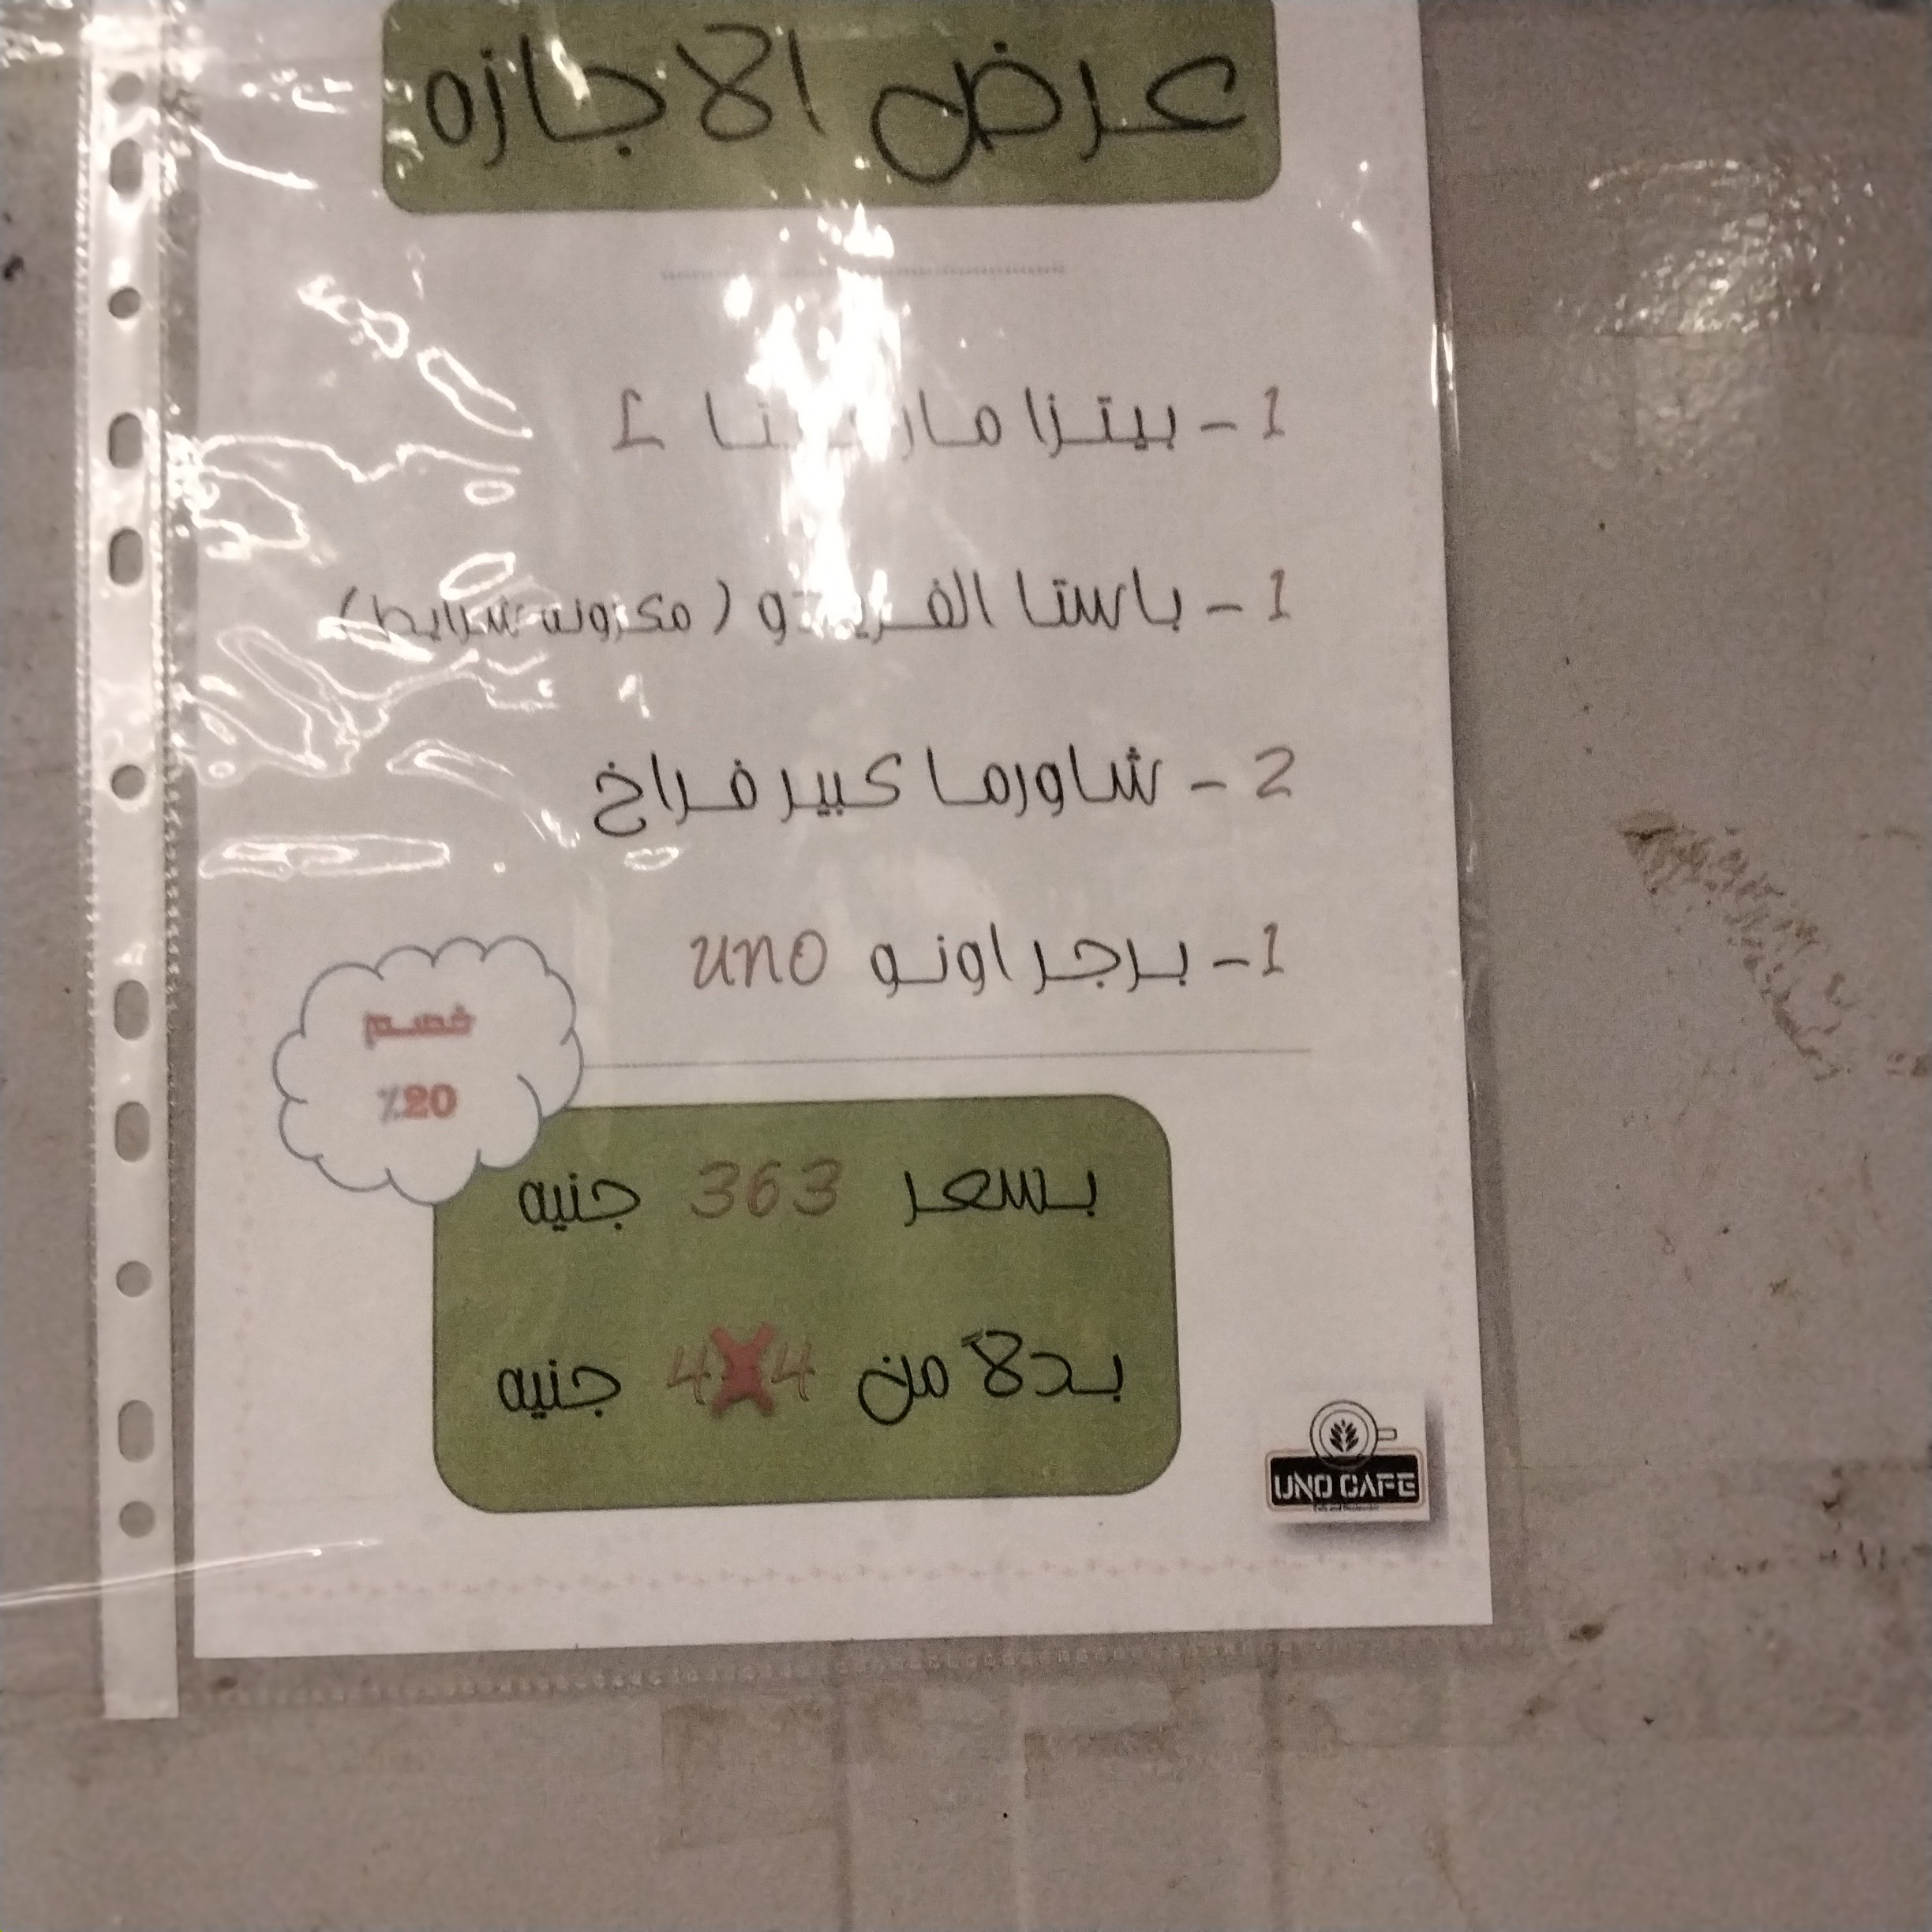 عرض الاجازه
1 - بيتزا مارجريتا L
1 - باستا الفريدو ( مكرونه شرايط )
2 - شاورما كبير فراخ
1 - برجر اونو uno
خصم
%20
بسعر 363 جنيه
بدلاً من جنيه
UNO CAFE